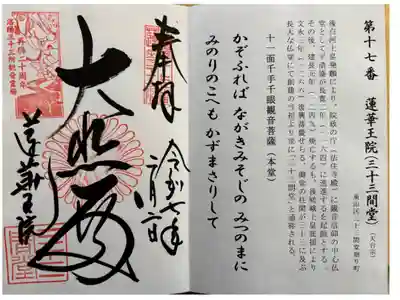 第十七番　蓮華王院（三十三間堂）（天台宗）
東山区三十三間堂廻り町
後白河上皇発願により、院政の庁（法住寺殿）に観音信仰の中心仏
堂として平清盛が長寛二年（一一六四）に造進するを起願とする
その後、建長元年（一二四九）焼亡するも、後嵯峨上皇庇援により
文永三年（一二六六）復興落慶せらる。御堂の柱間が三十三に及ぶ
長大な仏堂にて創建の当初より俗に「三十三間堂」と通称される。
十一面千手千眼観音菩薩（本堂）
かぞふれば　ながきみそじの　みつのまに
みのりのこへも　かずまさりして
奉拝　令和七年
二月
大悲殿
蓮華王院
再興二十周年
洛陽三十三所観音霊場